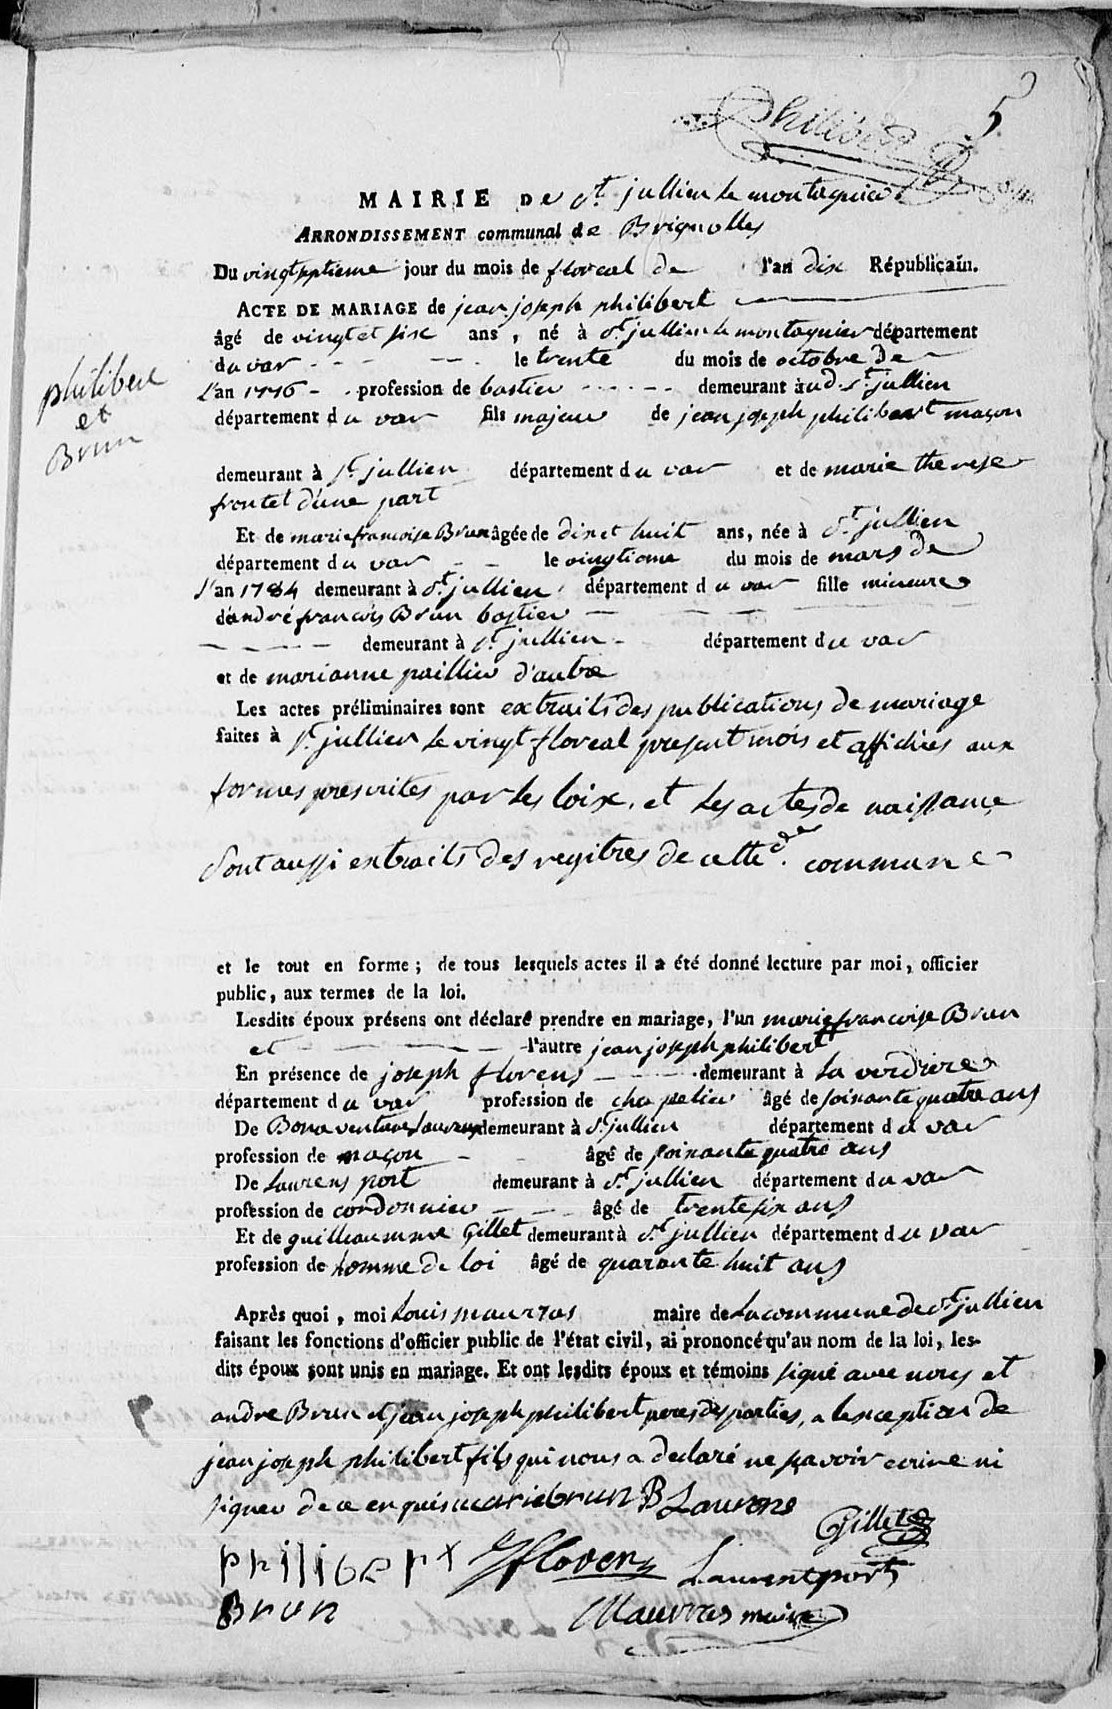 5
Philibert
MAIRIE De St. jullien le montagnier
ARRONDISSEMENT communal de Brignolles
Du vingtseptieme jour du mois de floreal de l'an dix Républicain.
ACTE DE MARIAGE de jean joseph philibert
âgé de vingt et six ans, né à St. jullien le montagnier département
du var le trente du mois de octobre de
L'an 1776 profession de bastier demeurant à aud. St. jullien
département du var fils majeur de jean joseph philibert maçon
philibert
et
Brun
demeurant à St. jullien département du var et de marie therese
frontet d'une part
Et de marie françoise Brun âgée de dix et huit ans, née à St. jullien
département du var le vingtieme du mois de mars de
l'an 1784 demeurant à St. jullien département du var fille mineure
d'andré françois Brun bastier
demeurant à St. jullien département du var
et de marianne paillier d'autre
Les actes préliminaires sont extraits des publications de mariage
faites à St. jullien le vingt floreal present mois et affichées aux
formes prescrites par les loix, et les actes de naissance
sont aussi extraits des regitres de cette de. commune
et le tout en forme ; de tous lesquels actes il a été donné lecture par moi, officier
public, aux termes de la loi.
Lesdits époux présens ont déclaré prendre en mariage, l'un marie françoise Brun
et l'autre jean joseph philibert
En présence de joseph florens demeurant à La verdiere
département du var profession de chapelier âgé de soixante quatre ans
De Bonaventure Laurens demeurant à St. jullien département du var
profession de maçon âgé de soixante quatre ans
De Laurens port demeurant à St. jullien département du var
profession de cordonnier âgé de trente six ans
Et de guilleaumme Gillet demeurant à St. jullien département du var
profession de homme de loi âgé de quarante huit ans
Après quoi, moi Louis maurras maire de La commune de St. jullien
faisant les fonctions d'officier public de l'état civil, ai prononcé qu'au nom de la loi, les-
dits époux sont unis en mariage. Et ont lesdits époux et témoins signé avec nous et
andre Brun et jean joseph philibert peres des parties, a lexception de
jean joseph philibert fils qui nous a declaré ne sçavoir ecrire ni
signer de ce enquis marie brun B Laurens
Gillet
philibert X J floren Laurent port
Brun Maurras maire